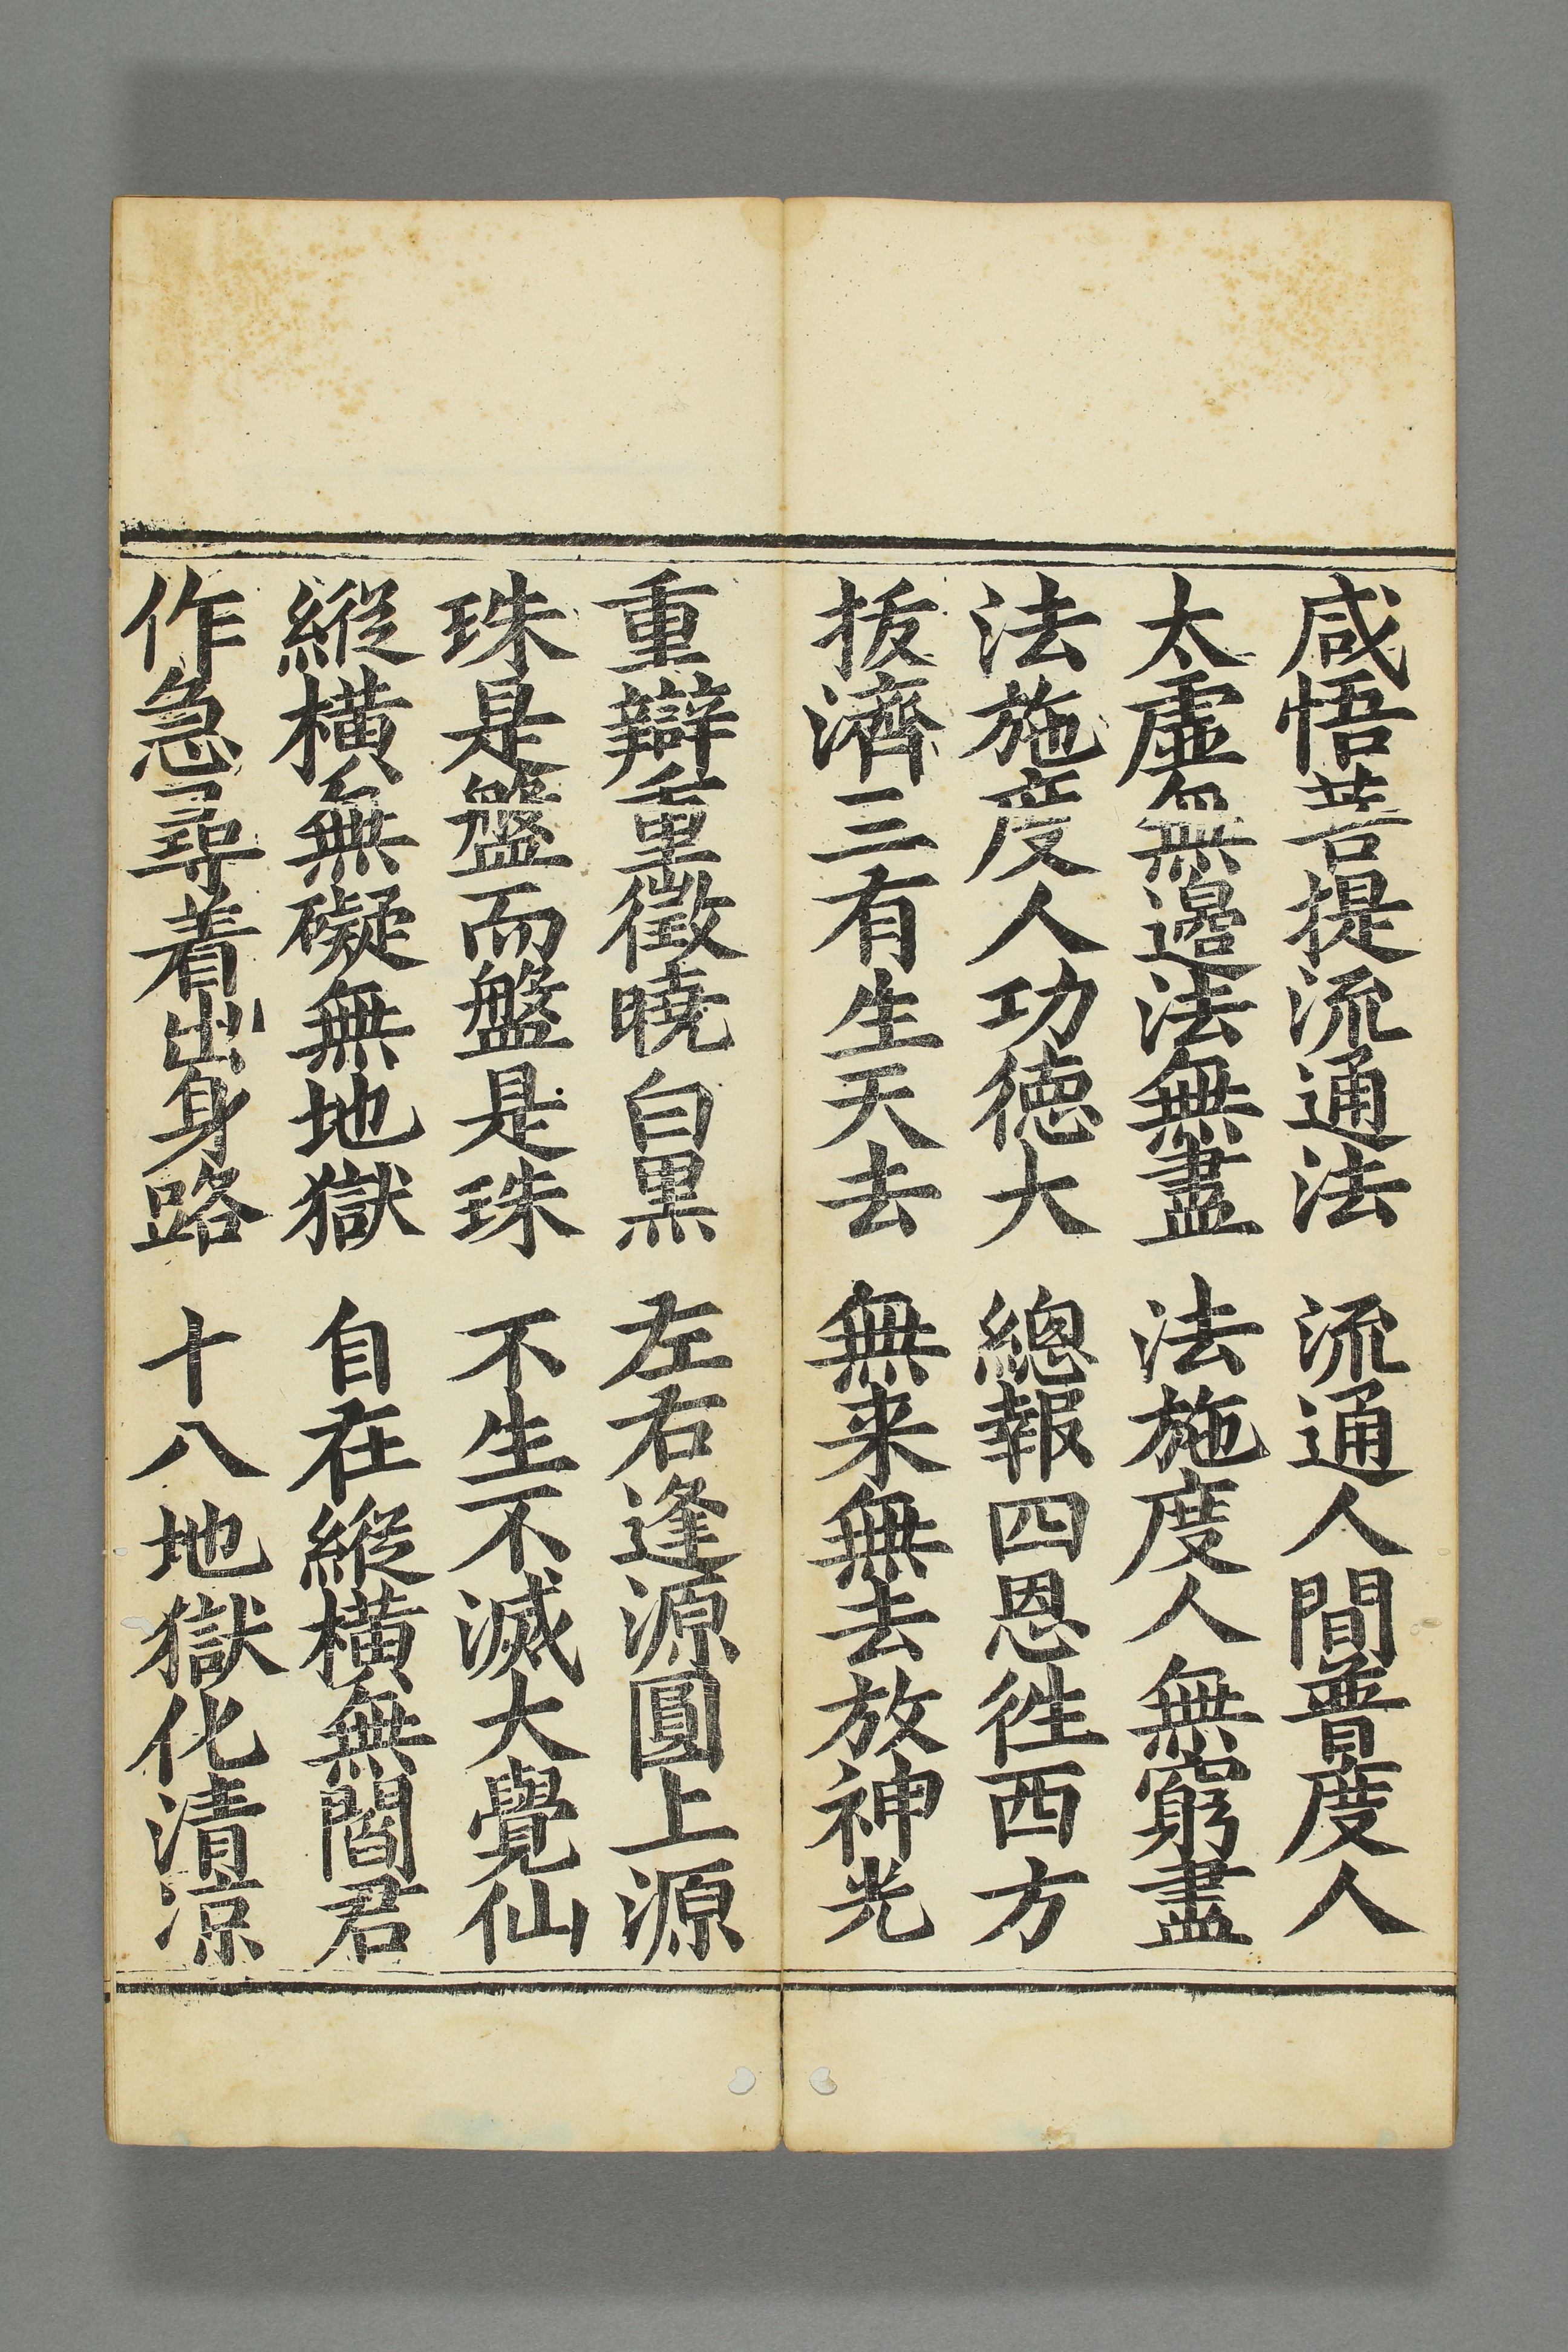 咸悟菩提流通法　流通人間普度人
太虛無邊法無盡　法施度人無窮盡
法施度人功德大　總報四恩徃西方
拔濟三有生天去　無来無去放神光
重辯重徵曉白黑　左右逢源圓上源
珠是盤而盤是珠　不生不滅大覺仙
縱橫無礙無地獄　自在縱橫無閻君
作急尋着出身路　十八地獄化清凉